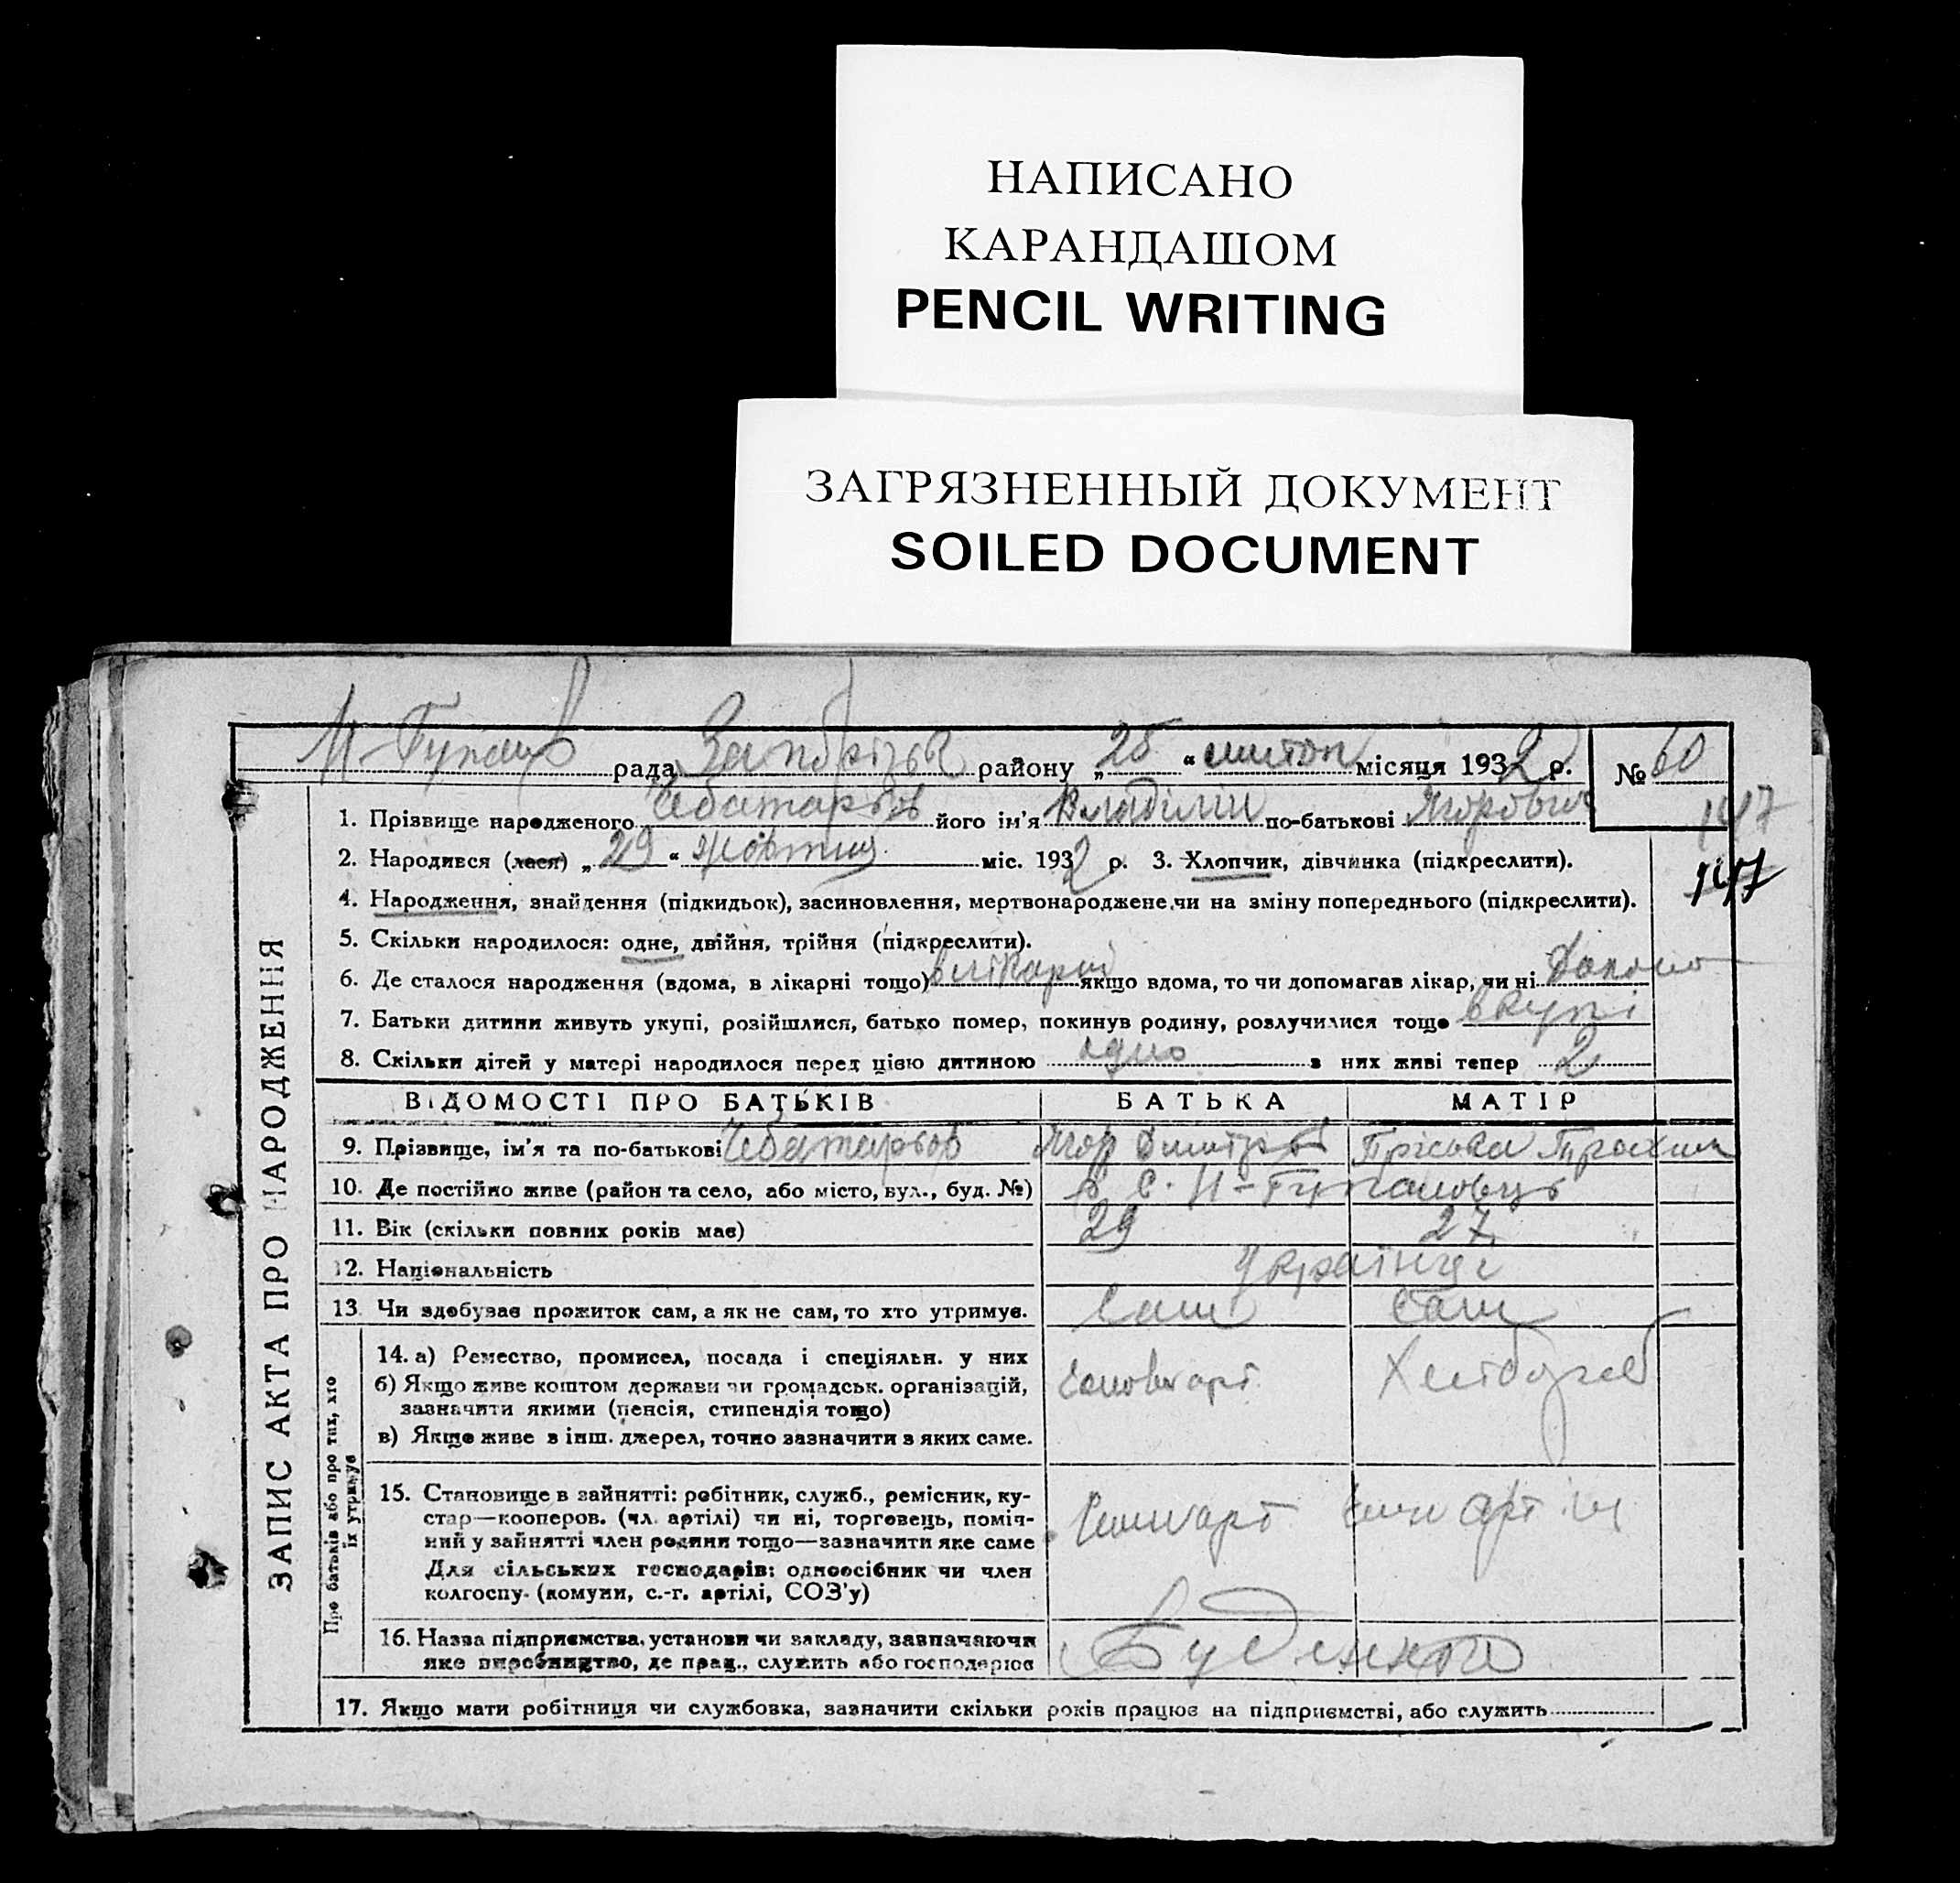 НАПИСАНО
КАРАНДАШОМ
PENCIL WRITING
ЗАГРЯЗНЕННЫЙ ДОКУМЕНТ
SOILED DOCUMENT
рада району „25“ місяця 1932 р. № 60
1. Прізвище народженого Чеботарьов його ім'я Владілін по-батькові Ягорович
147
2. Народився (лася) „29“ жовтня міс. 1932 р. 3. Хлопчик, дівчинка (підкреслити).
147
4. Народження, знайдення (підкидьок), засиновлення, мертвонароджене, чи на зміну попереднього (підкреслити).
5. Скільки народилося: одне, двійня, трійня (підкреслити).
6. Де сталося народження (вдома, в лікарні тощо) в лікарні якщо вдома, то чи допомагав лікар, чи ні
7. Батьки дитини живуть укупі, розійшлися, батько помер, покинув родину, розлучилися тощо вкупі
8. Скільки дітей у матері народилося перед цією дитиною одно з них живі тепер 2
ВІДОМОСТІ ПРО БАТЬКІВ БАТЬКА МАТІР
9. Прізвище, ім'я та по-батькові Чеботарьов Ягор Дмитров Пріська Трохим
10. Де постійно живе (район та село, або місто, вул., буд. №)
11. Вік (скільки повних років має) 29 27
12. Національність Українці
13. Чи здобуває прожиток сам, а як не сам, то хто утримує. Сам Сам
14. а) Ремество, промисел, посада і спеціяльн. у них Хлібороб
б) Якщо живе коштом держави чи громадськ. організацій,
зазначити якими (пенсія, стипендія тощо)
в) Якщо живе з інш. джерел, точно зазначити з яких саме.
15. Становище в зайнятті: робітник, служб., ремісник, ку-
стар—кооперов. (чл. артілі) чи ні, торговець, поміч-
ний у зайнятті член родини тощо—зазначити яке саме
Для сільських господарів: одноосібник чи член
колгоспу (комуни, с.-г. артілі, СОЗ'у)
16. Назва підприємства, установи чи закладу, зазначаючи
яке виробництво, де прац., служить або господарює
17. Якщо мати робітниця чи службовка, зазначити скільки років працює на підприємстві, або служить
ЗАПИС АКТА ПРО НАРОДЖЕННЯ
Про батьків або про тих, хто
їх утримує